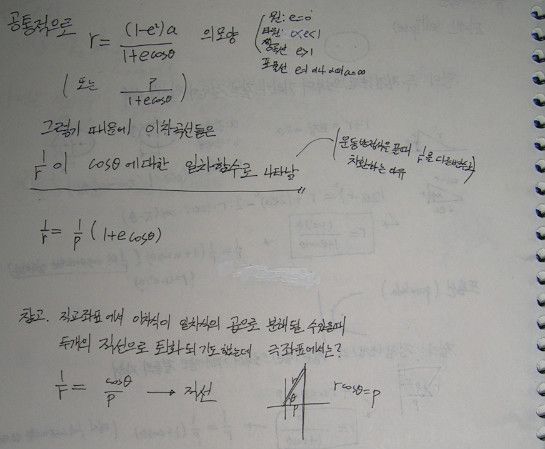 공통적으로 r = (1-e²)a / 1+ecosθ 의 모양
원: e=0
타원: 0<e<1
쌍곡선 e>1
포물선 e=1
(또는 P / 1+ecosθ)
그렇기 때문에 이차곡선들은
1/r 이 cosθ에 대한 일차함수로 나타남
(운동방정식을 풀때 1/r을 다른변수로
치환하는 이유)
1/r = 1/p (1+ecosθ)
참고. 직교좌표에서 이차식이 일차식의 곱으로 분해될 수 있을때
두개의 직선으로 퇴화되기도 했는데 극좌표에서는?
1/r = cosθ/p → 직선
r
θ
P
rcosθ=p